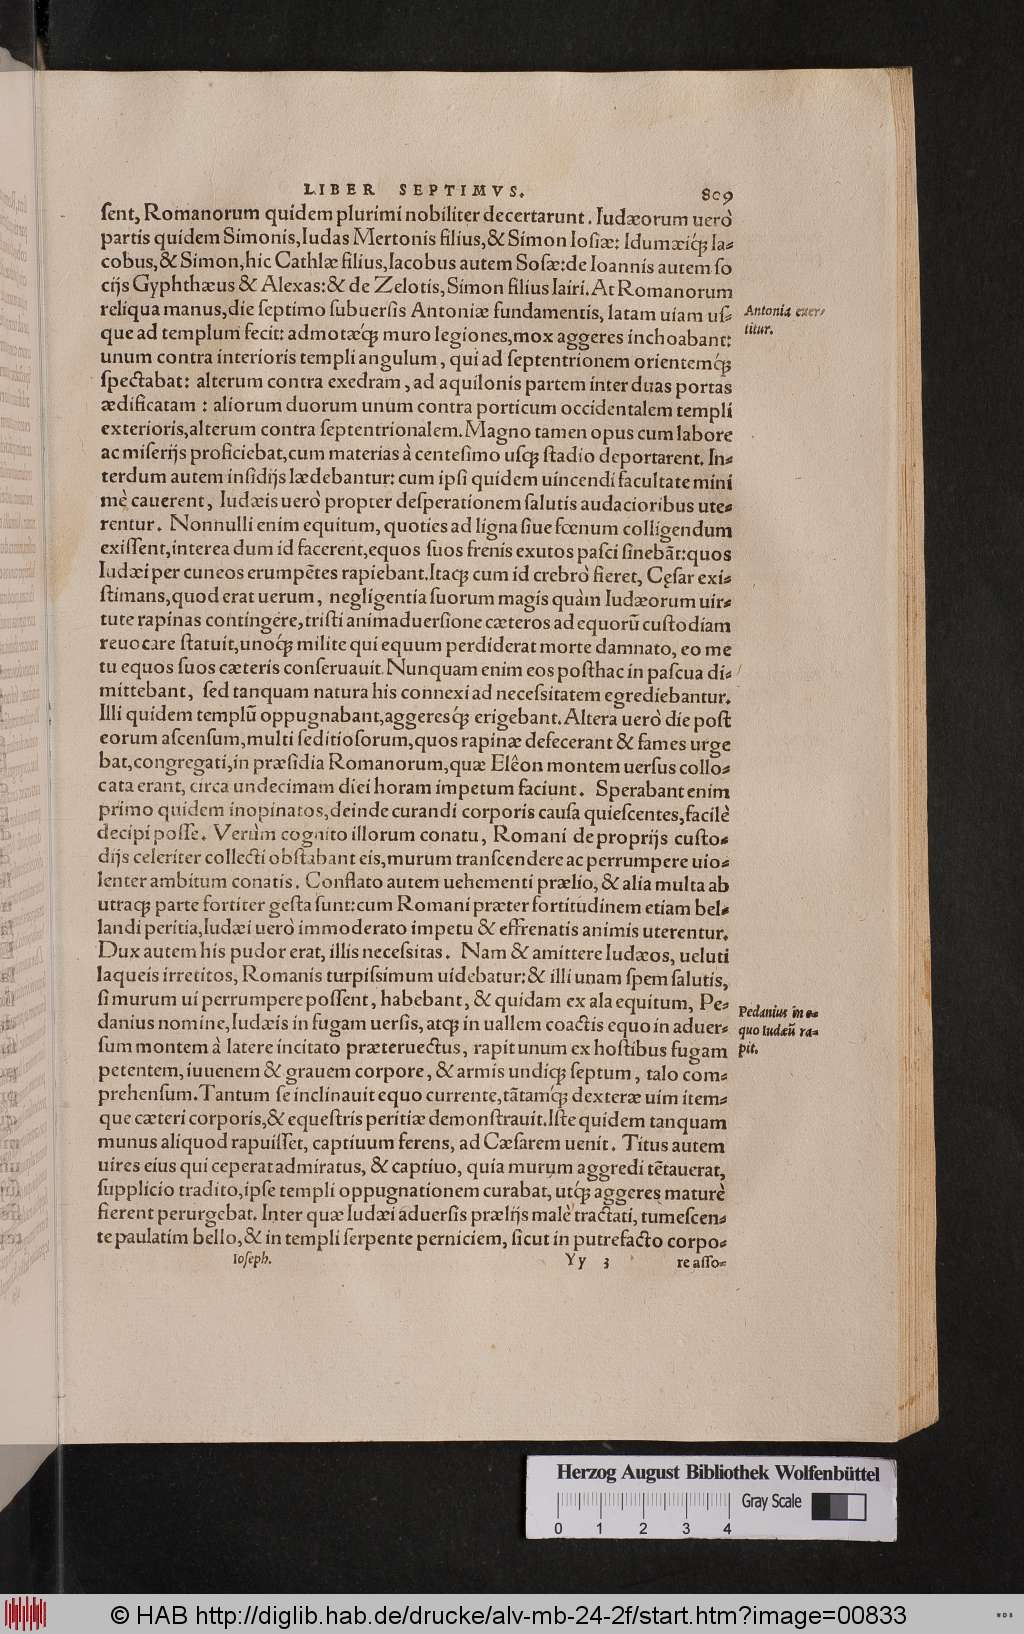 LIBER SEPTIMVS. 809
ſent, Romanorum quidem plurimi nobiliter decertarunt. Iudæorum uerò
partis quidem Simonis, Iudas Mertonis filius, & Simon Ioſiæ: Idumæiq́ꝫ Ia⸗
cobus, & Simon, hic Cathlæ filius, Iacobus autem Soſæ: de Ioannis autem ſo
cijs Gyphthæus & Alexas: & de Zelotis, Simon filius Iairi. At Romanorum
reliqua manus, die ſeptimo ſubuerſis Antoniæ fundamentis, latam uiam uſ⸗
que ad templum fecit: admotæq́ꝫ muro legiones, mox aggeres inchoabant:
unum contra interioris templi angulum, qui ad ſeptentrionem orientemq́ꝫ
ſpectabat: alterum contra exedram, ad aquilonis partem inter duas portas
ædificatam: aliorum duorum unum contra porticum occidentalem templi
exterioris, alterum contra ſeptentrionalem. Magno tamen opus cum labore
ac miſerijs proficiebat, cum materias à centeſimo uſqꝫ ſtadio deportarent. In⸗
terdum autem inſidijs lædebantur: cum ipſi quidem uincendi facultate mini
mè cauerent, Iudæis uerò propter deſperationem ſalutis audacioribus ute⸗
rentur. Nonnulli enim equitum, quoties ad ligna ſiue fœnum colligendum
exiſſent, interea dum id facerent, equos ſuos frenis exutos paſci ſinebãt: quos
Iudæi per cuneos erumpẽtes rapiebant. Itaqꝫ cum id crebrò fieret, Cęſar exi⸗
ſtimans, quod erat uerum, negligentia ſuorum magis quàm Iudæorum uir⸗
tute rapinas contingere, triſti animaduerſione cæteros ad equorũ cuſtodiam
reuocare ſtatuit, unoq́ꝫ milite qui equum perdiderat morte damnato, eo me
tu equos ſuos cæteris conſeruauit. Nunquam enim eos poſthac in paſcua di⸗
mittebant, ſed tanquam natura his connexi ad neceſsitatem egrediebantur.
Illi quidem templũ oppugnabant, aggeresq́ꝫ erigebant. Altera uerò die poſt
eorum aſcenſum, multi ſeditioſorum, quos rapinæ defecerant & fames urge
bat, congregati, in præſidia Romanorum, quæ Elêon montem uerſus collo⸗
cata erant, circa undecimam diei horam impetum faciunt. Sperabant enim
primo quidem inopinatos, deinde curandi corporis cauſa quieſcentes, facilè
decipi poſſe. Verùm cognito illorum conatu, Romani de proprijs cuſto⸗
dijs celeriter collecti obſtabant eis, murum tranſcendere ac perrumpere uio⸗
lenter ambitum conatis. Conflato autem uehementi prælio, & alia multa ab
utraqꝫ parte fortiter geſta ſunt: cum Romani præter fortitudinem etiam bel⸗
landi peritia, Iudæi uerò immoderato impetu & effrenatis animis uterentur.
Dux autem his pudor erat, illis neceſsitas. Nam & amittere Iudæos, ueluti
laqueis irretitos, Romanis turpiſsimum uidebatur: & illi unam ſpem ſalutis,
ſi murum ui perrumpere poſſent, habebant, & quidam ex ala equitum, Pe⸗
danius nomine, Iudæis in fugam uerſis, atqꝫ in uallem coactis equo in aduer⸗
ſum montem à latere incitato præteruectus, rapit unum ex hoſtibus fugam
petentem, iuuenem & grauem corpore, & armis undiqꝫ ſeptum, talo com⸗
prehenſum. Tantum ſe inclinauit equo currente, tãtamq́ꝫ dexteræ uim item⸗
que cæteri corporis, & equeſtris peritiæ demonſtrauit. Iſte quidem tanquam
munus aliquod rapuiſſet, captiuum ferens, ad Cæſarem uenit. Titus autem
uires eius qui ceperat admiratus, & captiuo, quia murum aggredi tẽtauerat,
ſupplicio tradito, ipſe templi oppugnationem curabat, utq́ꝫ aggeres maturè
fierent perurgebat. Inter quæ Iudæi aduerſis prælijs malè tractati, tumeſcen⸗
te paulatim bello, & in templi ſerpente perniciem, ſicut in putrefacto corpo⸗
Ioſeph. Yy 3 re aſſo⸗
Antonia euer⸗
titur.
Pedanius in e⸗
quo Iudæũ ra⸗
pit.
Herzog August Bibliothek Wolfenbüttel
Gray Scale
0 1 2 3 4
© HAB http://diglib.hab.de/drucke/alv-mb-24-2f/start.htm?image=00833